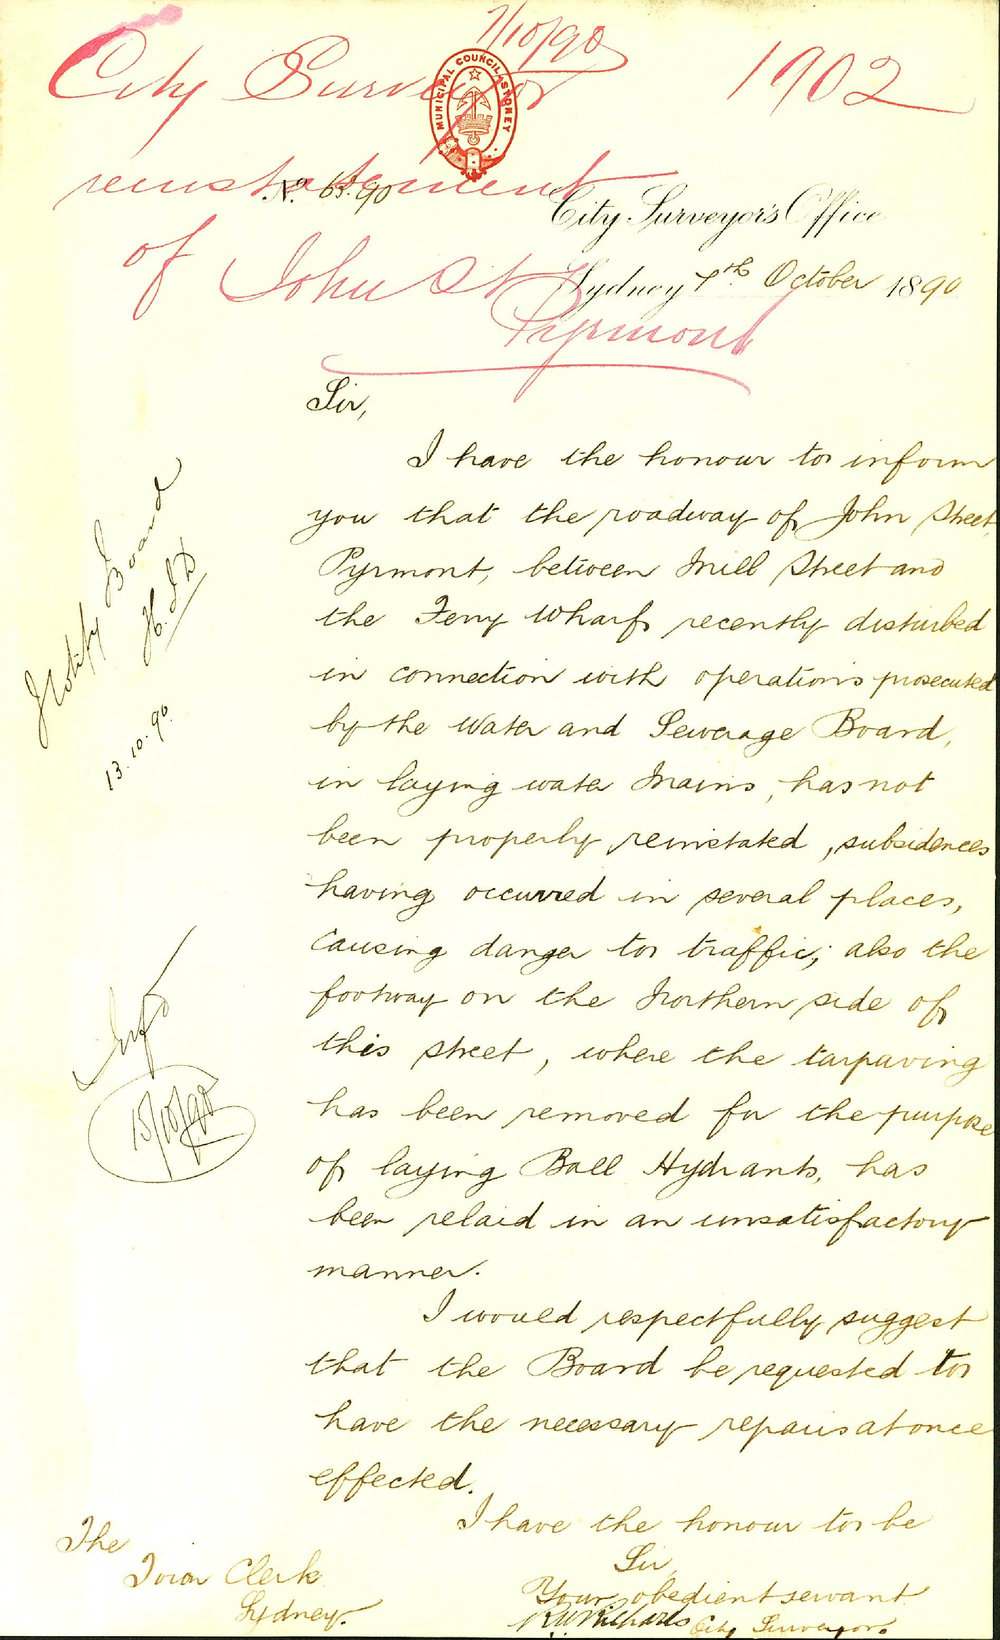 7/10/90
City Surveyor
1902
MUNICIPAL COUNCIL SYDNEY
reinstatement
No. 65.90
City Surveyor's Office
of John St
Sydney 7th October 1890
Pyrmont
Sir,
I have the honour to inform
you that the roadway of John Street,
Pyrmont, between Mill Street and
the Ferry Wharf, recently disturbed
in connection with operations prosecuted
by the Water and Sewerage Board,
in laying water Mains, has not
been properly reinstated, subsidences
having occurred in several places,
causing danger to traffic; also the
footway on the Northern side of
this street, where the tarpaving
has been removed for the purpose
of laying Ball Hydrants, has
been relaid in an unsatisfactory
manner.
I would respectfully suggest
that the Board be requested to
have the necessary repairs at once
effected.
I have the honour to be
Sir,
Your obedient servant
R W Richards City Surveyor.
The
Town Clerk
Sydney.
Notify Board
H. S. D
13.10.90.
15/10/90